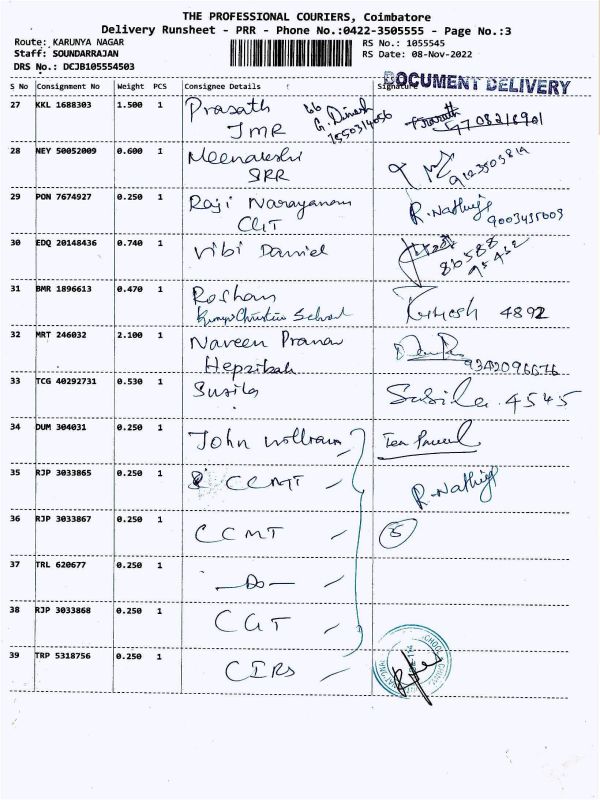 THE PROFESSIONAL COURIERS, Coimbatore
Delivery Runsheet - PRR - Phone No.:0422-3505555 - Page No.:3
Route: KARUNYA NAGAR RS No.: 1055545
Staff: SOUNDARRAJAN RS Date: 08-Nov-2022
DRS No.: DCJB105554503
DOCUMENT DELIVERY
S No Consignment No Weight PCS Consignee Details Signature
27 KKL 1688303 1.500 1 Prasath G. Dinesh
JMR
28 NEY 50052009 0.600 1 Meenakshi
SRR
29 PON 7674927 0.250 1 Raji Narayanan R. Nathiya
9003435003
30 EDQ 20148436 0.740 1 Vibi Daniel 86588
95432
31 BMR 1896613 0.470 1 Roshan
Christian School 4892
32 MRT 246032 2.100 1 Naveen Pranav
Hepzibah 9342096676
33 TCG 40292731 0.530 1 Susila Susila 4545
34 DUM 304031 0.250 1 John
35 RJP 3033865 0.250 1 CCMT R. Nathiya
36 RJP 3033867 0.250 1 CCMT 5
37 TRL 620677 0.250 1 -Do-
38 RJP 3033868 0.250 1 CGT
39 TRP 5318756 0.250 1 CIRS